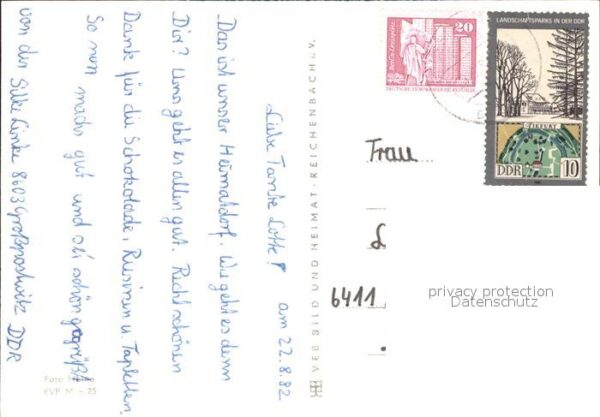 Liebe Tante Lotte! am 22.8.82
Das ist unser Heimatdorf. Wie geht es denn
Dir? Uns geht es allen gut. Recht schönen
Dank für die Schokolade, Rosinen u. Tabletten.
So nun machs gut und sei schön gegrüßt
von der Silke Linke 8603 Großpostwitz DDR
Foto
EVP M -.25
VEB BILD UND HEIMAT · REICHENBACH I. V.
20
DEUTSCHE DEMOKRATISCHE REPUBLIK
LANDSCHAFTSPARKS IN DER DDR
DDR 10
Frau
L
6411
privacy protection
Datenschutz